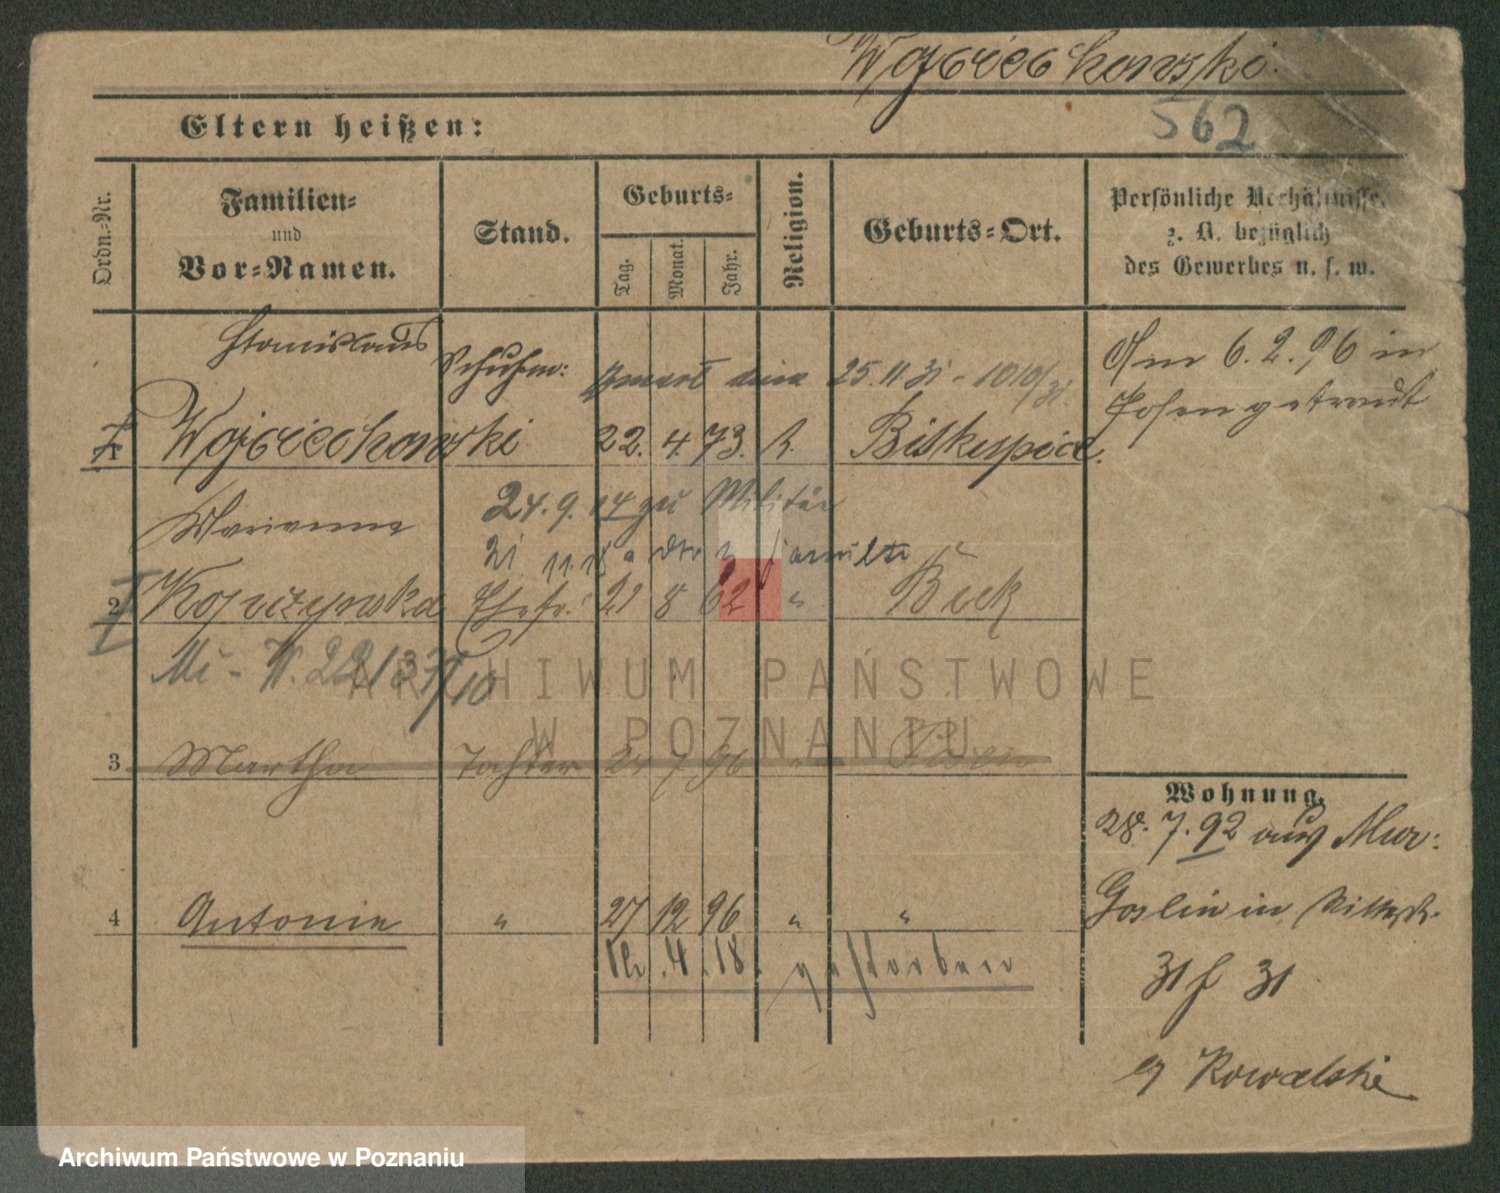 Wojciechowski.
562
Eltern heißen:
Ordn.-Nr.
Familien-
und
Vor-Namen.
Stand.
Geburts-
Tag.
Monat.
Jahr.
Religion.
Geburts-Ort.
Persönliche Verhältnisse,
z. B. bezüglich
des Gewerbes u. s. w.
Stanislaus Schuhm: 25.11.31 - 1010/31.
1 Wojciechowski 22. 4. 73. R. Biskupice.
Am 6.2.96 in
Posen getraut
24.9.14 zu Militär
Marianna
21 11.18 Familie
2 Kopczynska Ehefr. 21 8 62 " Buk
3 Martha Tochter 24 7 96 Posen
4 Antonie " 27 12 96 " "
4. 18. gestorben
Wohnung.
28. 7. 92 aus Mur:
Goslin in Ritterstr.
31 31
Kowalski
ARCHIWUM PAŃSTWOWE
W POZNANIU
Archiwum Państwowe w Poznaniu